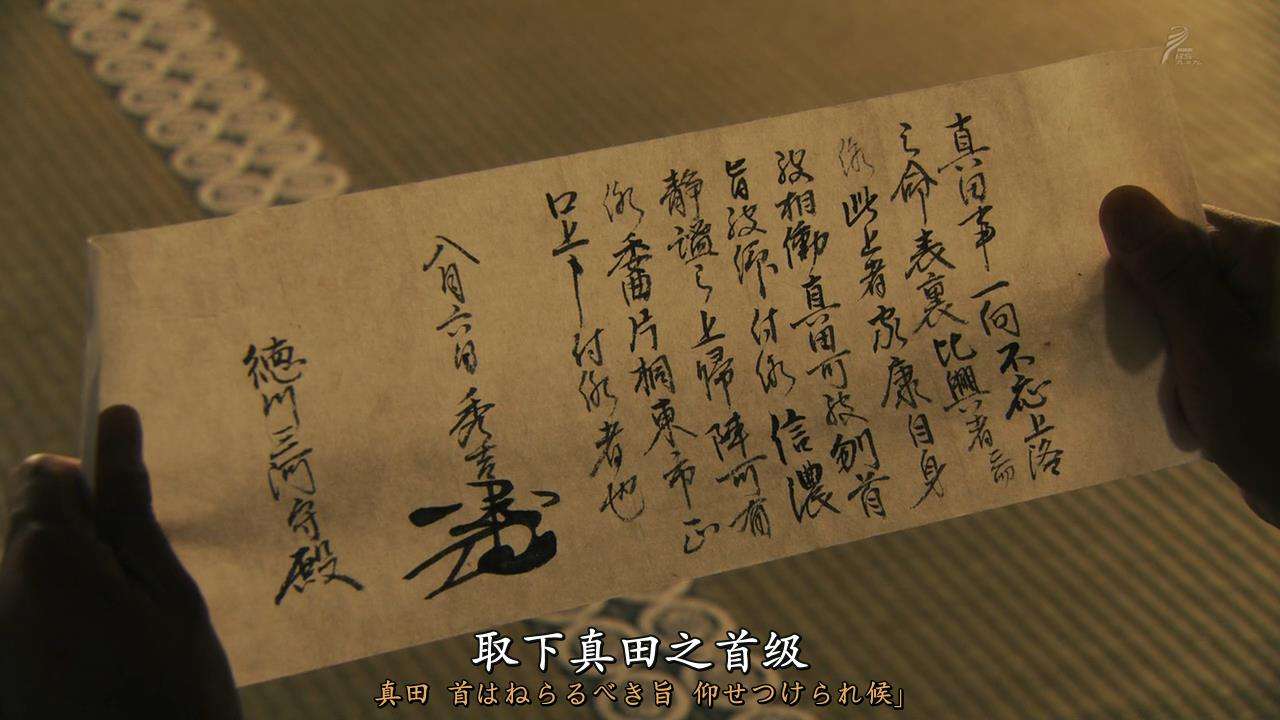 真田事一向不応上洛
之命表裏比興者ニ而
候此上者家康自身
被相働真田可被刎首
旨被仰付候信濃
静謐之上帰陣可有
候委曲片桐東市正
口上ニ付候者也
八月六日 秀吉
徳川三河守殿
取下真田之首级
真田 首はねらるべき旨 仰せつけられ候」